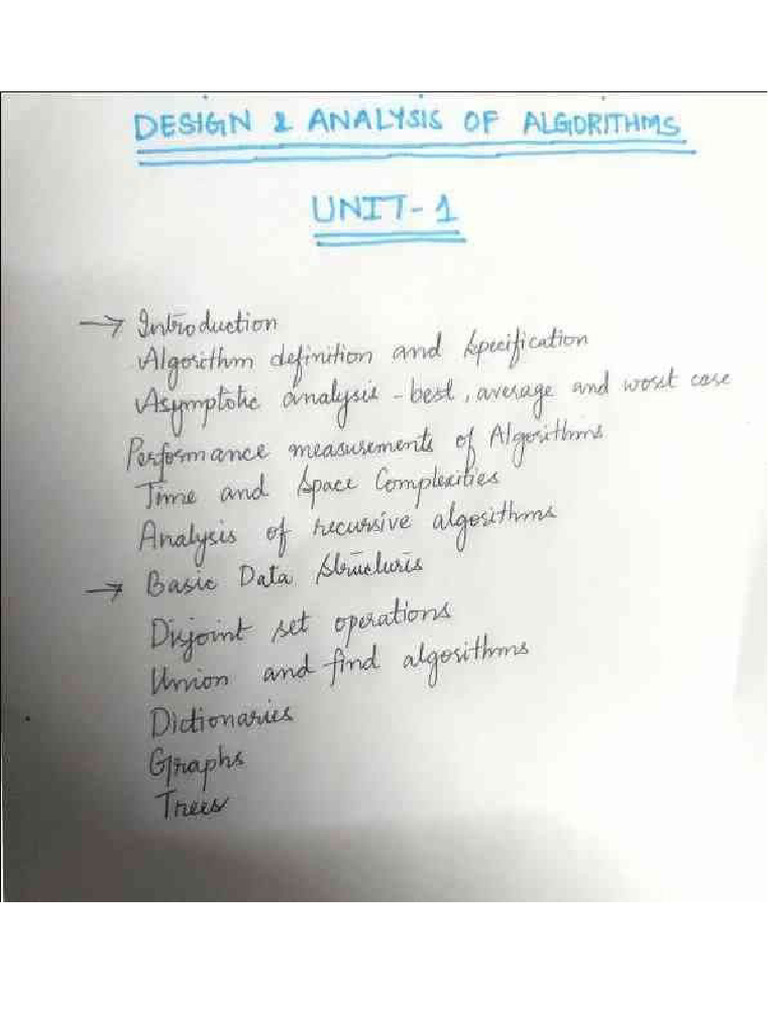 DESIGN & ANALYSIS OF ALGORITHMS
UNIT-1
→ Introduction
Algorithm definition and specification
Asymptotic analysis - best, average and worst case
Performance measurements of Algorithms
Time and Space Complexities
Analysis of recursive algorithms
→ Basic Data Structures
Disjoint set operations
Union and find algorithms
Dictionaries
Graphs
Trees